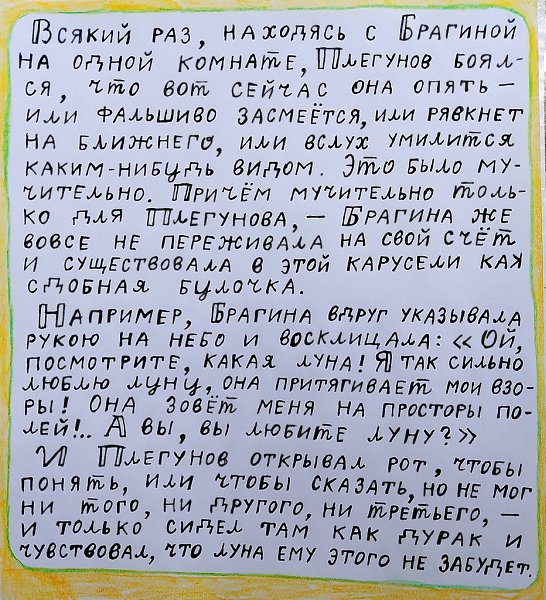 Всякий раз, находясь с Брагиной
на одной комнате, Плегунов боял-
ся, что вот сейчас она опять –
или фальшиво засмеётся, или рявкнет
на ближнего, или вслух умилится
каким-нибудь видом. Это было му-
чительно. Причём мучительно толь-
ко для Плегунова, – Брагина же
вовсе не переживала на свой счёт
и существовала в этой карусели как
сдобная булочка.
Например, Брагина вдруг указывала
рукою на небо и восклицала: «Ой,
посмотрите, какая луна! Я так сильно
люблю луну, она притягивает мои взо-
ры! Она зовёт меня на просторы по-
лей!.. А вы, вы любите луну?»
И Плегунов открывал рот, чтобы
понять, или чтобы сказать, но не мог
ни того, ни другого, ни третьего, –
и только сидел там как дурак и
чувствовал, что луна ему этого не забудет.